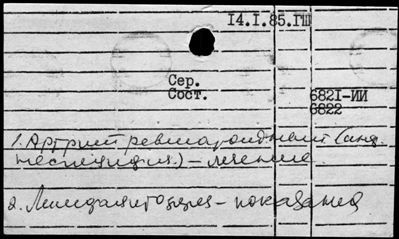 14.I.85.ГШ
Сер.
Сост.
6821-ИИ
6822
1. Артрит ревматоидный (инд.
пеницидия.) – лечение
2. – показания